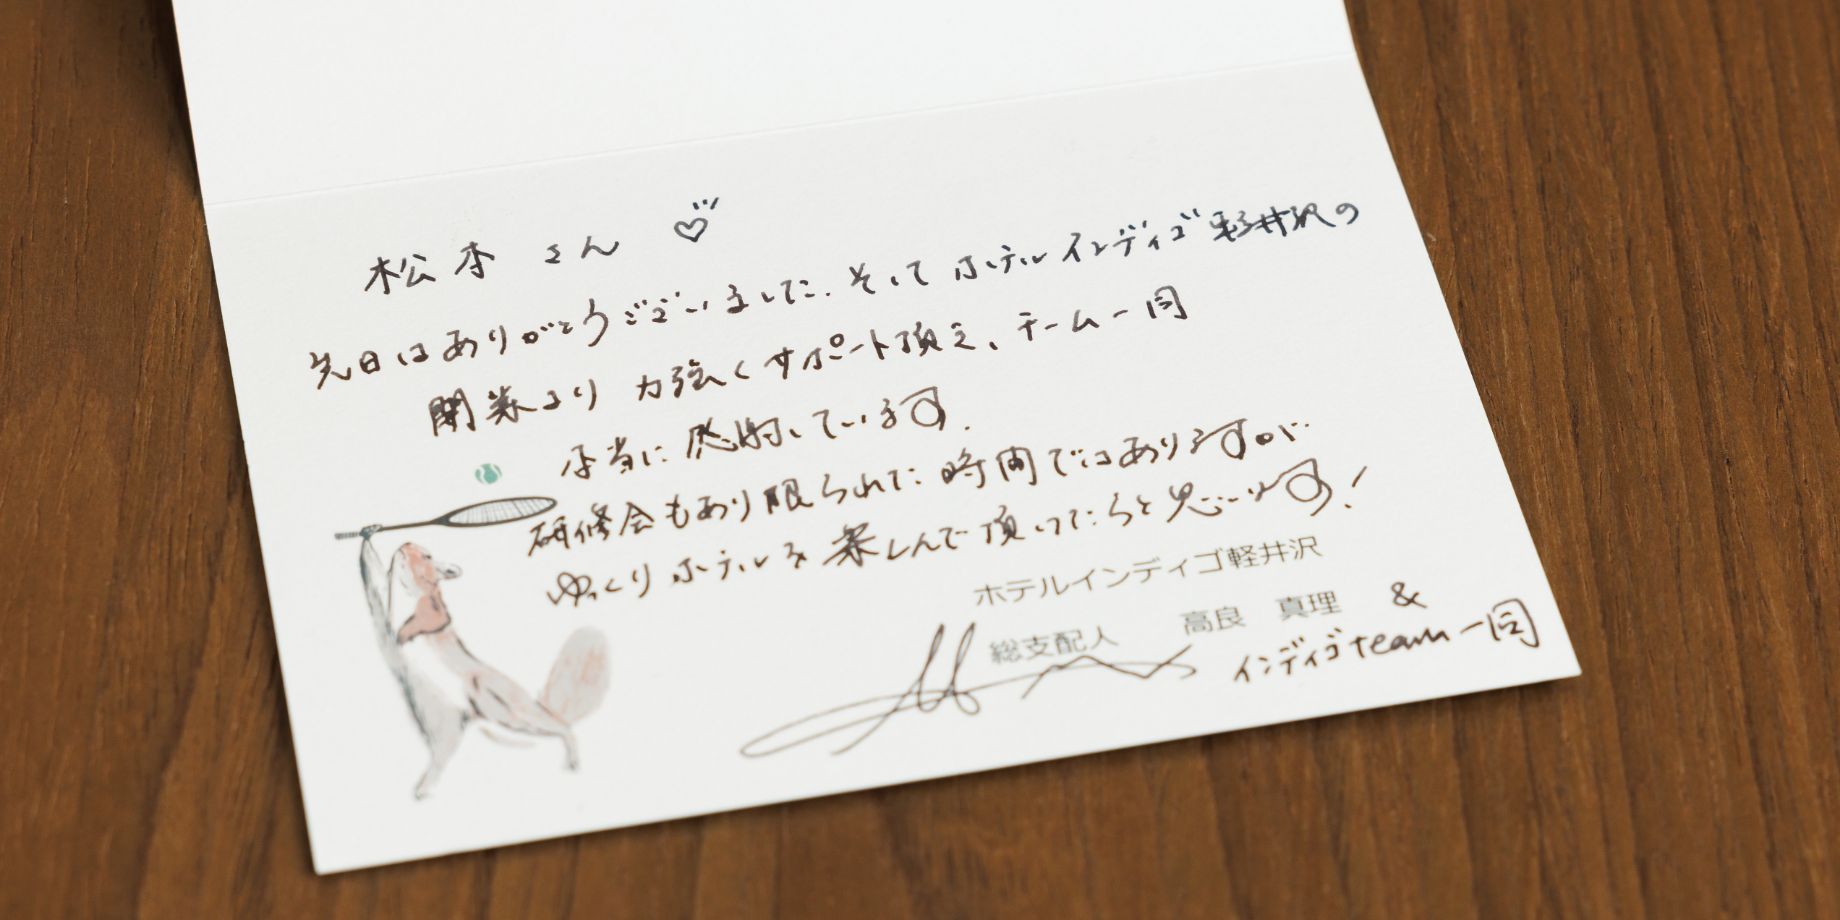 松本さん♡
先日はありがとうございました。そして ホテルインディゴ軽井沢の
開業より 力強くサポート頂き、チーム一同
本当に感謝しています。
研修会もあり限られた時間ではありますが
ゆっくりホテルを楽しんで頂けたらと思います!
ホテルインディゴ軽井沢
総支配人 高良 真理 &
インディゴteam一同